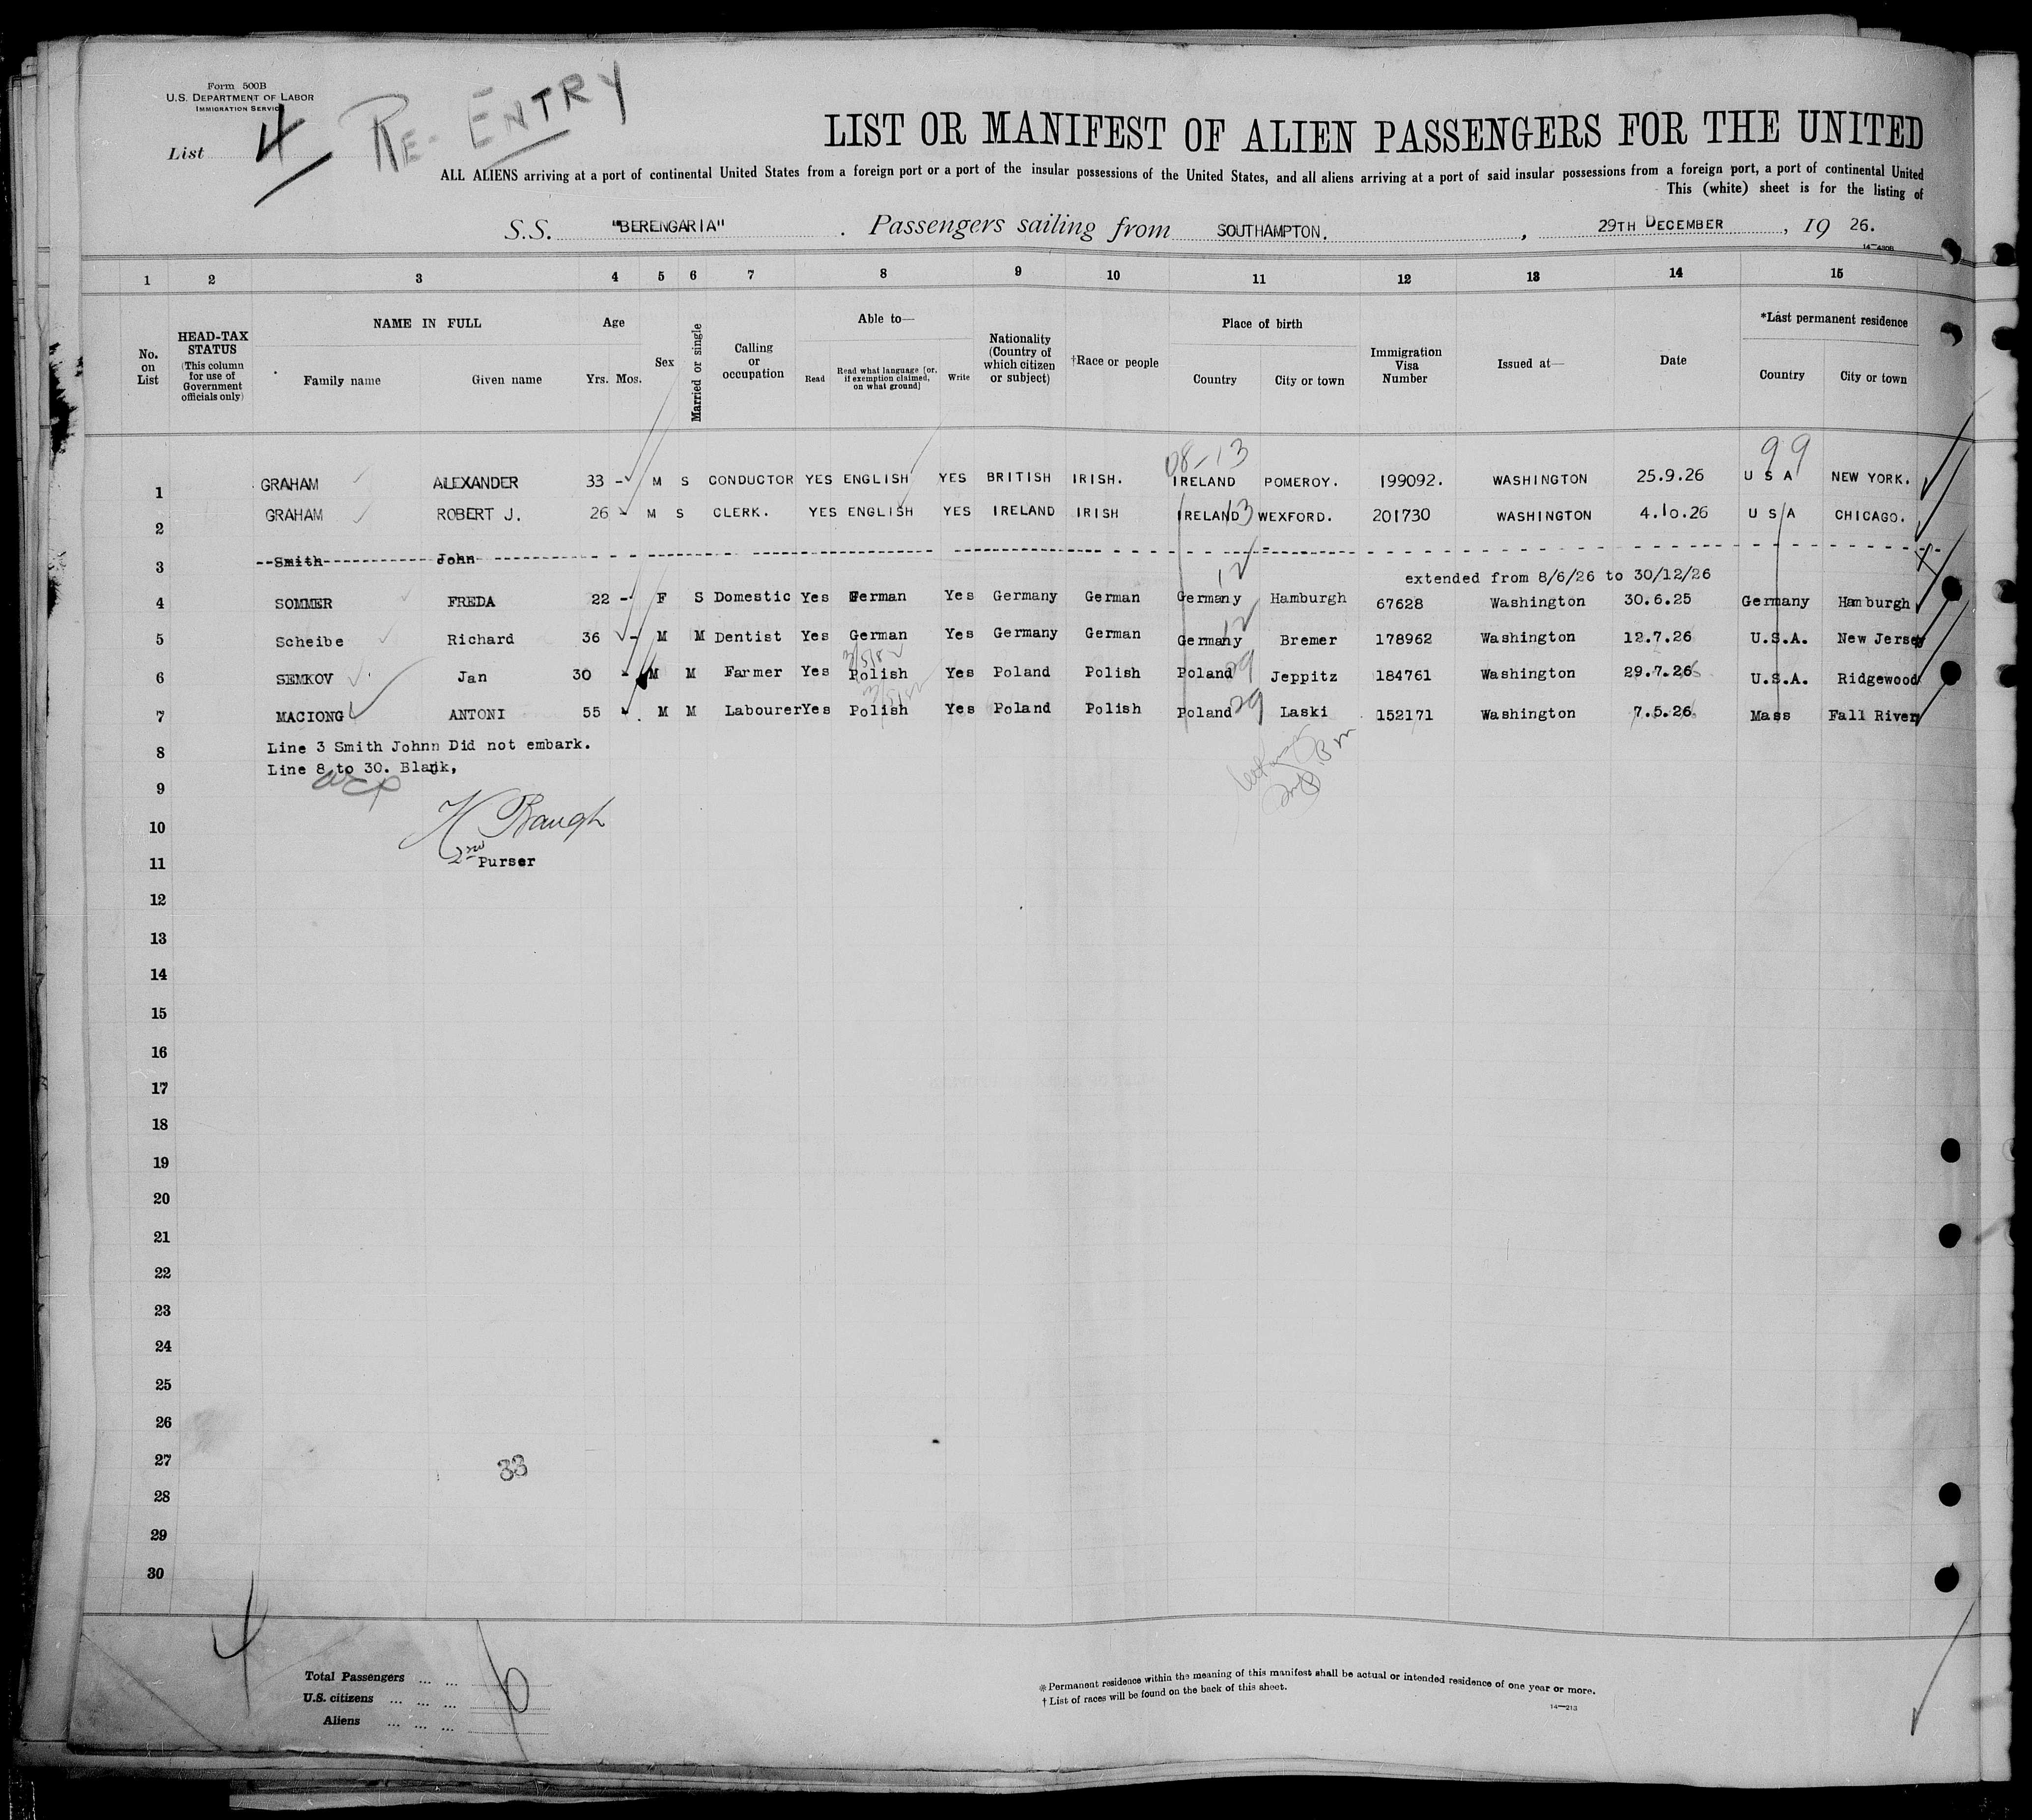 Form 500B
U.S. DEPARTMENT OF LABOR
IMMIGRATION SERVICE
List 4
RE-ENTRY
LIST OR MANIFEST OF ALIEN PASSENGERS FOR THE UNITED
ALL ALIENS arriving at a port of continental United States from a foreign port or a port of the insular possessions of the United States, and all aliens arriving at a port of said insular possessions from a foreign port, a port of continental United
This (white) sheet is for the listing of
S.S. "BERENGARIA" . Passengers sailing from SOUTHAMPTON. , 29TH DECEMBER , 19 26.
1 2 3 4 5 6 7 8 9 10 11 12 13 14 15
No. on List
HEAD-TAX STATUS (This column for use of Government officials only)
NAME IN FULL Family name Given name
Age Yrs. Mos.
Sex
Married or single
Calling or occupation
Able to— Read Read what language [or, if exemption claimed, on what ground] Write
Nationality (Country of which citizen or subject)
†Race or people
Place of birth Country City or town
Immigration Visa Number
Issued at—
Date
*Last permanent residence Country City or town
08-13 99
1 GRAHAM ALEXANDER 33 - M S CONDUCTOR YES ENGLISH YES BRITISH IRISH. IRELAND POMEROY. 199092. WASHINGTON 25.9.26 U S A NEW YORK.
2 GRAHAM ROBERT J. 26 - M S CLERK. YES ENGLISH YES IRELAND IRISH IRELAND 13 WEXFORD. 201730 WASHINGTON 4.10.26 U S A CHICAGO.
3 --Smith------------John
12 extended from 8/6/26 to 30/12/26
4 SOMMER FREDA 22 - F S Domestic Yes German Yes Germany German Germany Hamburgh 67628 Washington 30.6.25 Germany Hamburgh
5 Scheibe Richard 36 - M M Dentist Yes German Yes Germany German Germany 12 Bremer 178962 Washington 12.7.26 U.S.A. New Jersey
6 SEMKOV Jan 30 - M M Farmer Yes Polish Yes Poland Polish Poland 29 Jeppitz 184761 Washington 29.7.26 U.S.A. Ridgewood
7 MACIONG ANTONI 55 - M M Labourer Yes Polish Yes Poland Polish Poland 29 Laski 152171 Washington 7.5.26 Mass Fall River
8 Line 3 Smith Johnn Did not embark.
Line 8 to 30. Blank,
9
10 H Baugh
11 2nd Purser
12
13
14
15
16
17
18
19
20
21
22
23
24
25
26
27 33
28
29
30
4
Total Passengers ... ...
U.S. citizens ... ... ... 6
Aliens ... ... ...
* Permanent residence within the meaning of this manifest shall be actual or intended residence of one year or more.
† List of races will be found on the back of this sheet.
14—213